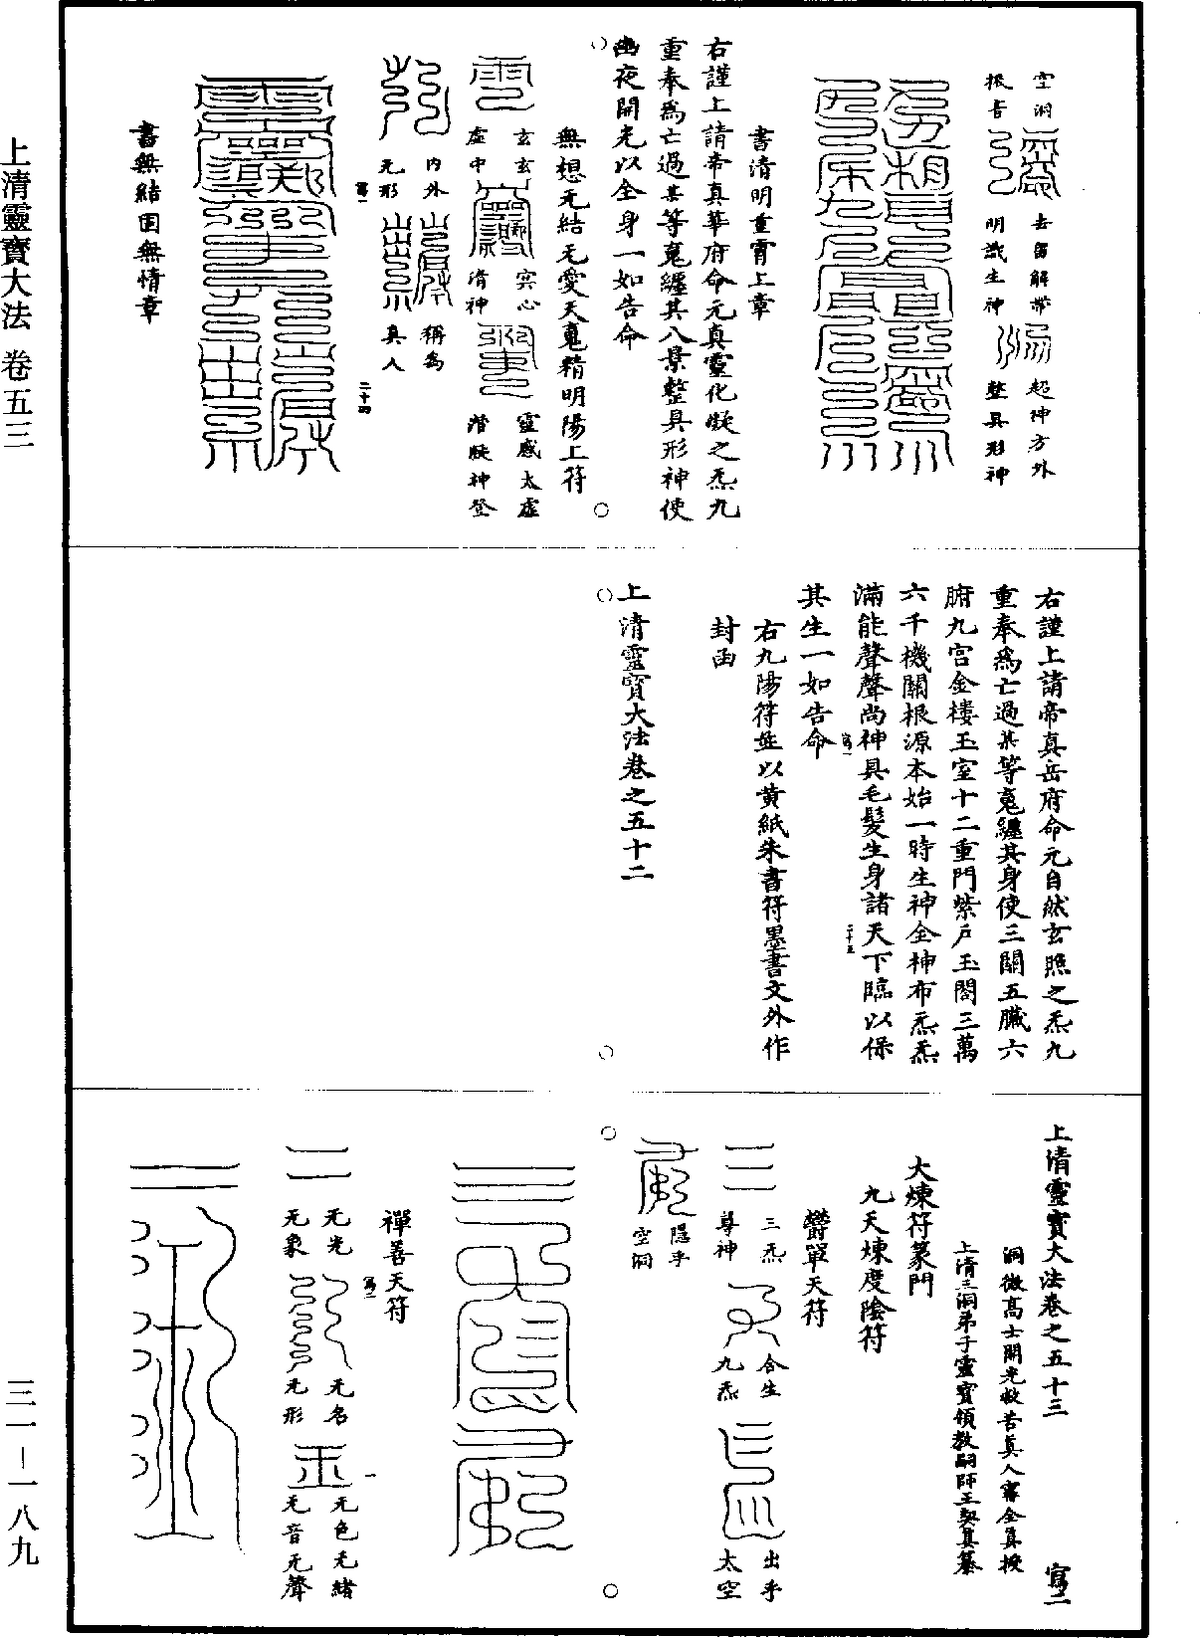 空洞
去留解帶
超神方外
拔苦
明識生神
整具形神
書清明重霄上章
右謹上請帝真華府命元真靈化凝之炁九
重奉為亡過某等䰟纏其八景整具形神使
幽夜開光以全身一如告命
無想无結无愛天䰟精明陽上符
玄玄
冥心
靈感太虛
虛中
清神
潛凝神登
內外
稱為
无形
真人
二十四
書無結固無情章
右謹上請帝真岳府命元自然玄照之炁九
重奉為亡過某等䰟纏其身使三關五臟六
腑九宮金樓玉室十二重門紫戶玉閣三萬
六千機關根源本始一時生神全神布炁炁
滿能聲聲尚神具毛髮生身諸天下臨以保
二十五
其生一如告命
右九陽符並以黃紙朱書符墨書文外作
封函
上清靈寶大法卷之五十二
上清靈寶大法卷之五十三
洞微高士開光救苦真人寗全真授
上清三洞弟子靈寶領教嗣師王契真纂
大煉符篆門
九天煉度陰符
鬱單天符
三炁
合生
出乎
尊神
九炁
太空
隱乎
空洞
禪善天符
无光
无名
无色无緒
无象
无形
无音无聲
上清靈寶大法 卷五三
三一－一八九